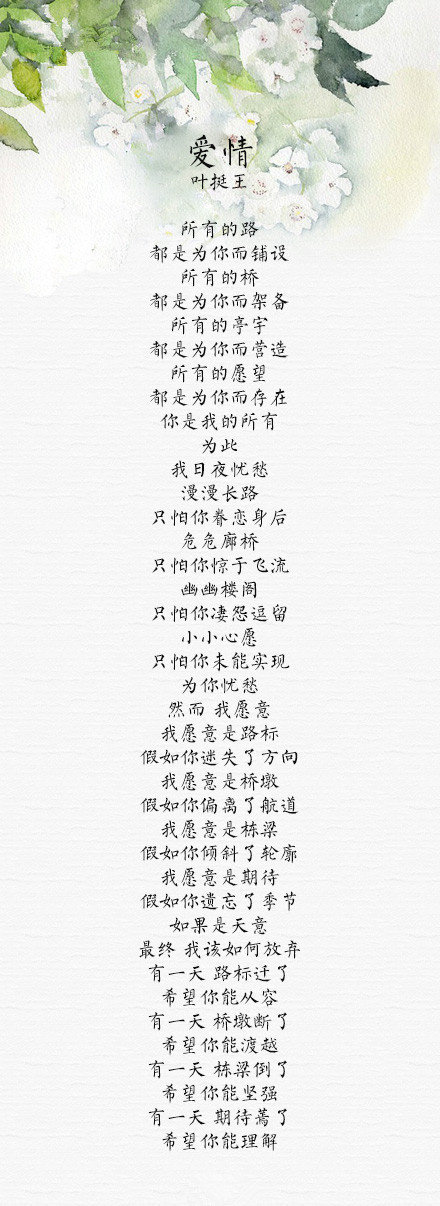 爱情
叶挺王
所有的路
都是为你而铺设
所有的桥
都是为你而架备
所有的亭宇
都是为你而营造
所有的愿望
都是为你而存在
你是我的所有
为此
我日夜忧愁
漫漫长路
只怕你眷恋身后
危危廊桥
只怕你惊于飞流
幽幽楼阁
只怕你凄怨逗留
小小心愿
只怕你未能实现
为你忧愁
然而 我愿意
我愿意是路标
假如你迷失了方向
我愿意是桥墩
假如你偏离了航道
我愿意是栋梁
假如你倾斜了轮廓
我愿意是期待
假如你遗忘了季节
如果是天意
最终 我该如何放弃
有一天 路标迁了
希望你能从容
有一天 桥墩断了
希望你能渡越
有一天 栋梁倒了
希望你能坚强
有一天 期待蔫了
希望你能理解